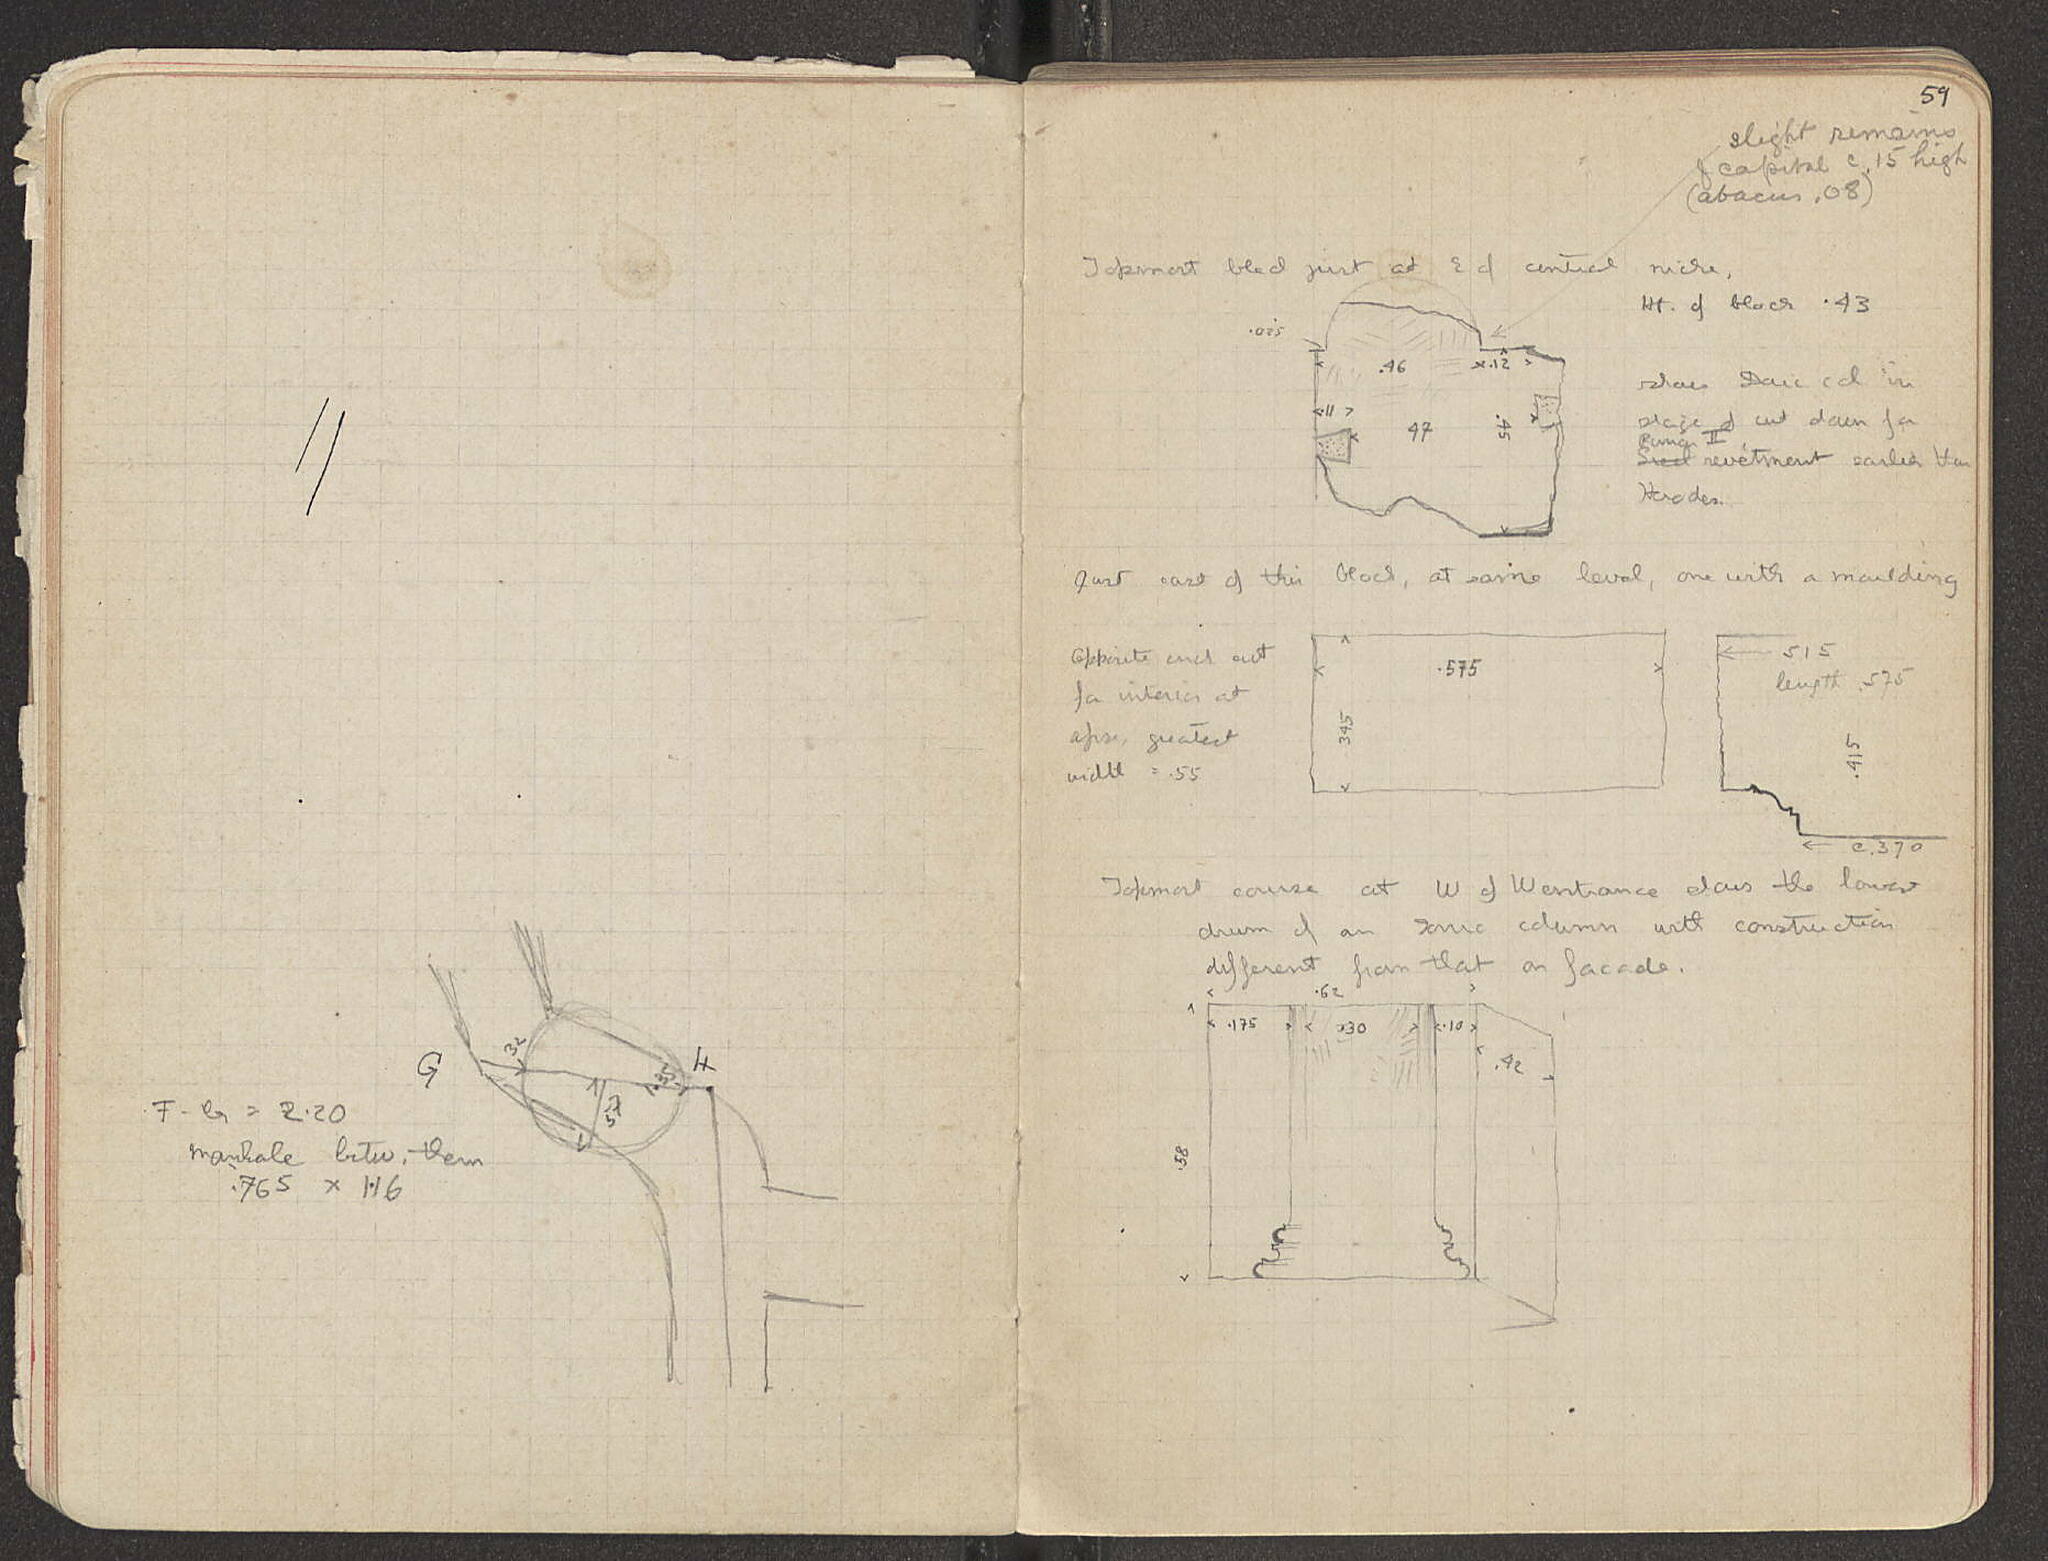 G
32
H
.35
.57
F - G = 2.20
manhole betw. them
.765 x 1.16
59
slight remains
of capital c .15 high
(abacus .08)
Topmost block just at E of central niche.
Ht. of block .43
.025
.46
.12
.11
.47
.45
shows Doric col in
stage of cut down for
Roman II
revetment earlier than
Herodes.
Just east of this block, at same level, one with a moulding
Opposite end cut
for interior at
apse, greatest
width = .55
.575
.345
.515
length .575
.415
c. .370
Topmost course at W of W entrance shows the lower
drum of an Ionic column with construction
different from that on facade.
.62
.175
.30
.10
.42
.58